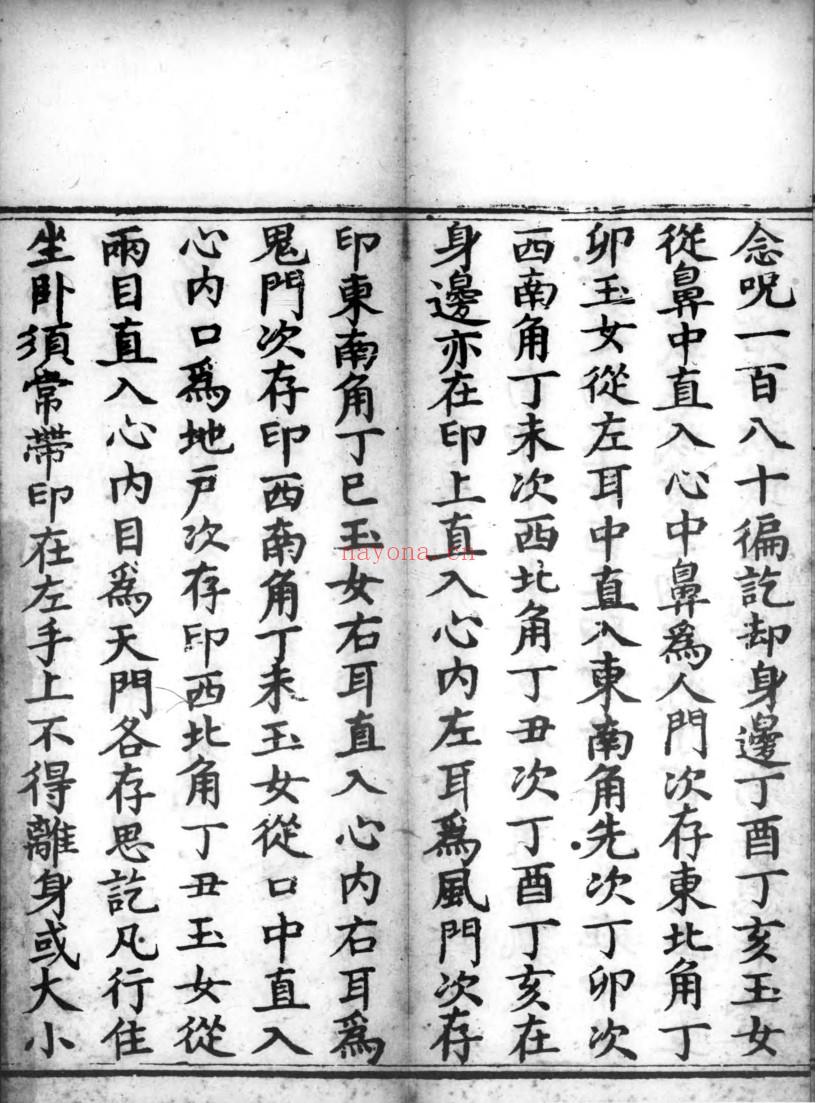 念呪一百八十徧訖却身邊丁酉丁亥玉女
從鼻中直入心中鼻爲人門次存東北角丁
卯玉女從左耳中直入東南角先次丁卯次
西南角丁未次西北角丁丑次丁酉丁亥在
身邊亦在印上直入心内左耳爲風門次存
印東南角丁巳玉女右耳直入心内右耳爲
鬼門次存印西南角丁未玉女從口中直入
心内口爲地戸次存印西北角丁丑玉女從
兩目直入心内目爲天門各存思訖凡行住
坐卧須常帶印在左手上不得離身或大小
nayona.cn